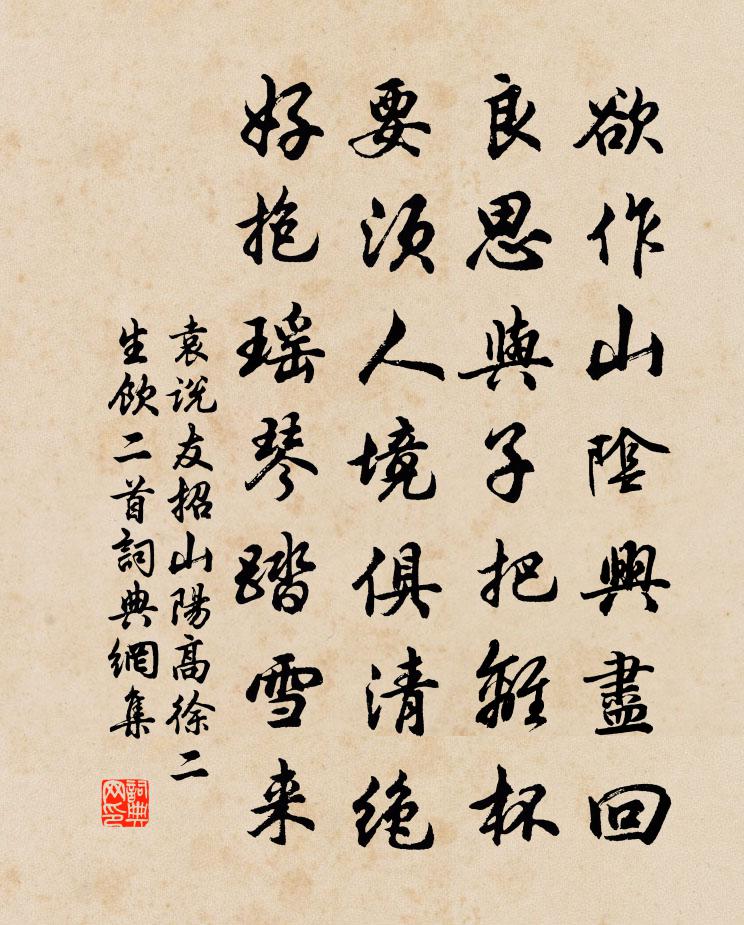 欲作山陰興盡回
良思與子把離杯
要須人境俱清絶
好抱瑶琴踏雪来
袁说友招山陽高徐二
生飲二首詞典網集
詞典网印